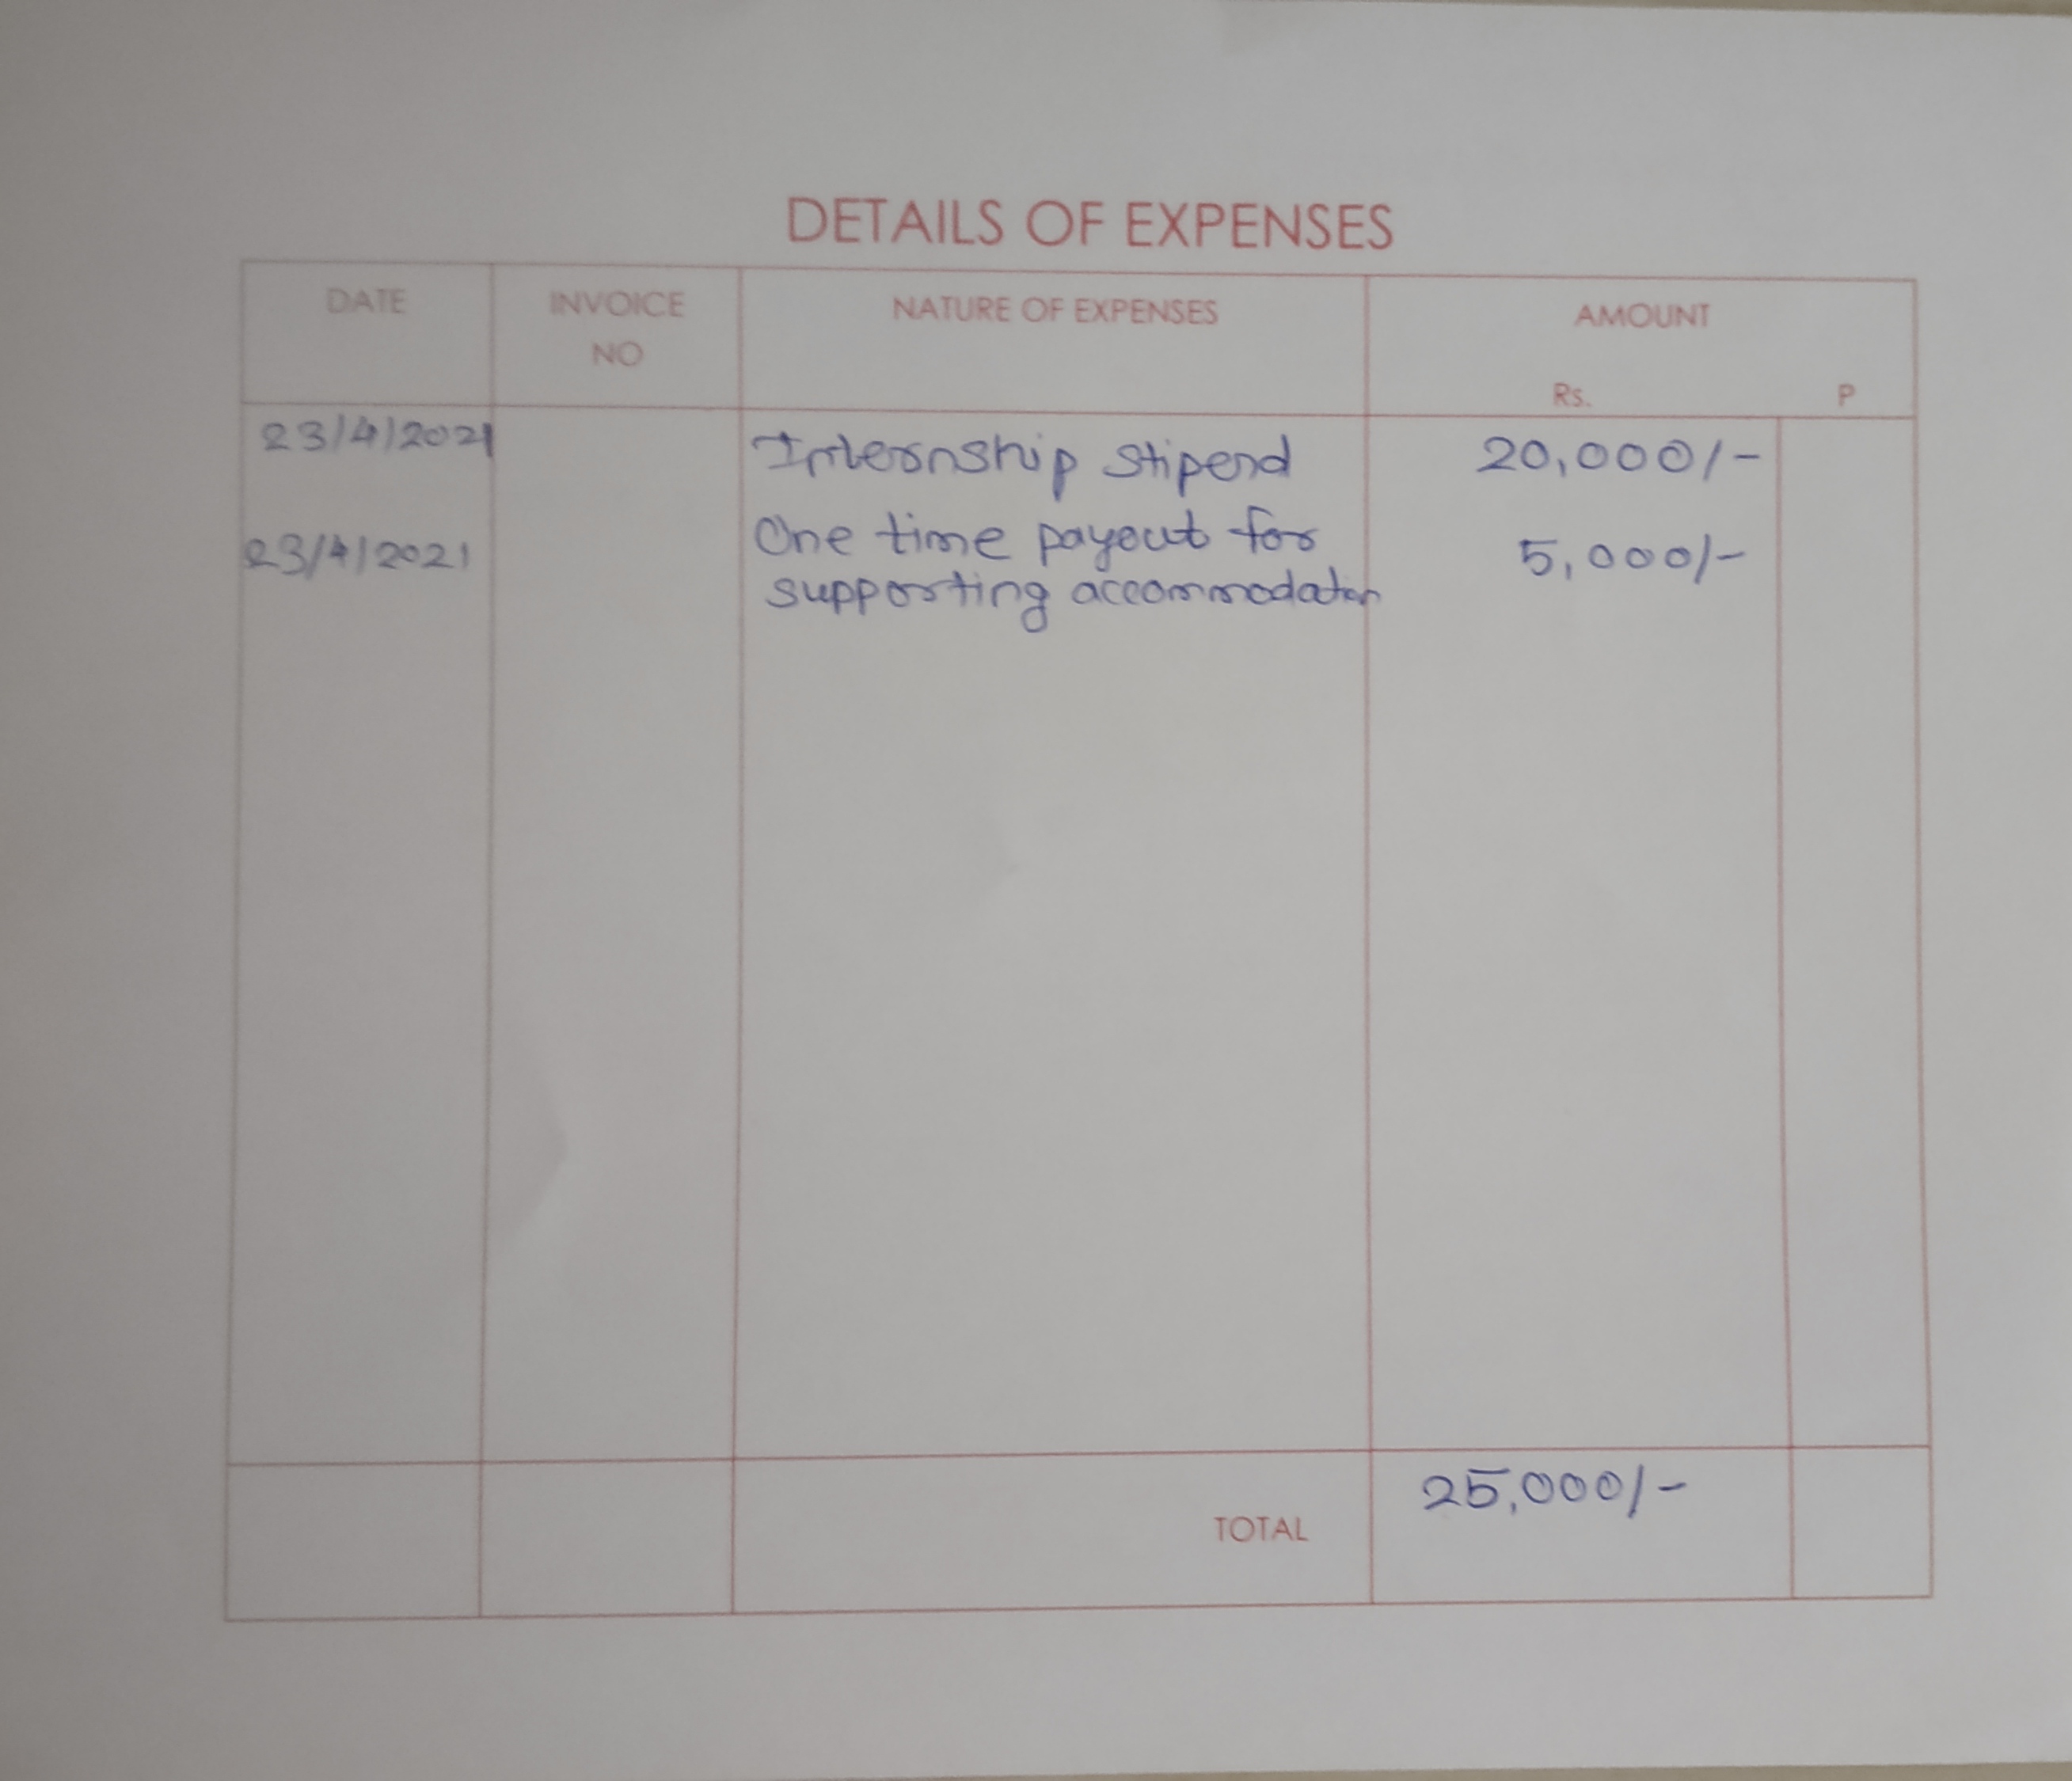 DETAILS OF EXPENSES
DATE INVOICE NATURE OF EXPENSES AMOUNT
NO
Rs. P
23/4/2021 Internship stipend 20,000/-
One time payout for
23/4/2021 5,000/-
supporting accommodation
25,000/-
TOTAL